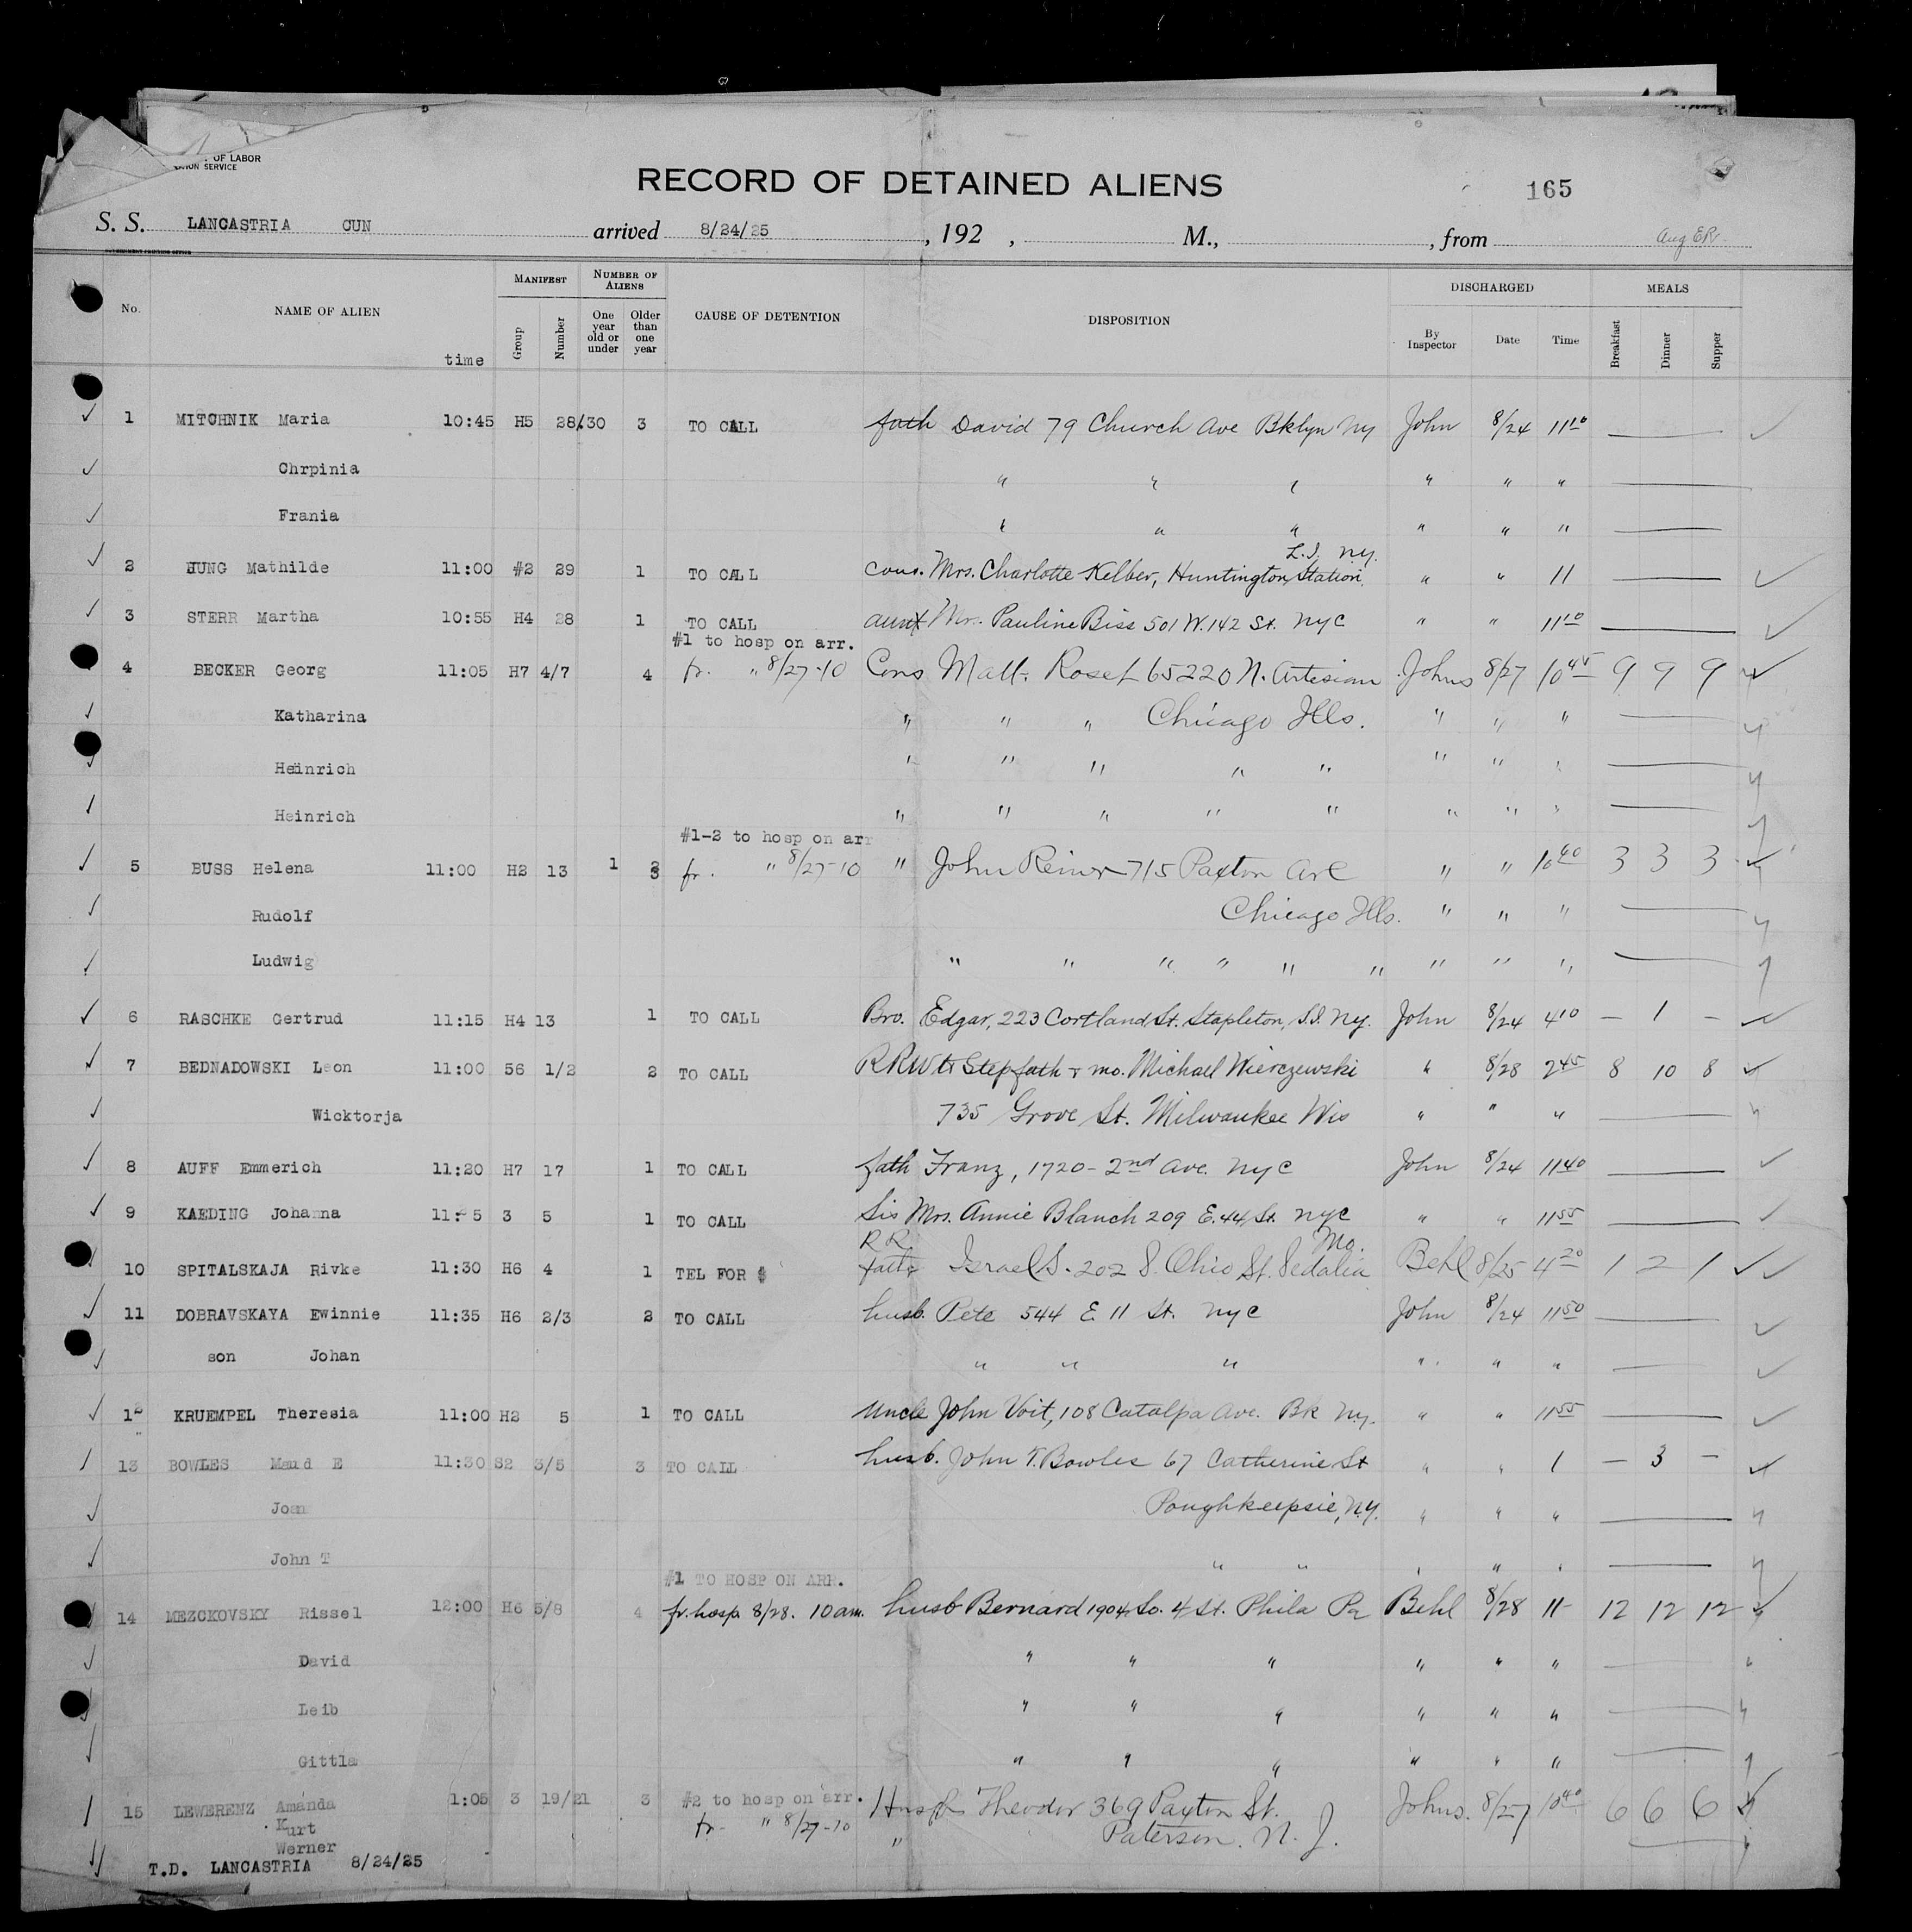 OF LABOR
SERVICE
RECORD OF DETAINED ALIENS
165
S. S. LANCASTRIA CUN arrived 8/24/25 , 192 , M., , from Aug ER
No. NAME OF ALIEN time MANIFEST Group Number NUMBER OF ALIENS One year old or under Older than one year CAUSE OF DETENTION DISPOSITION DISCHARGED By Inspector Date Time MEALS Breakfast Dinner Supper
1 MITCHNIK Maria 10:45 H5 28/30 3 TO CALL fath David 79 Church Ave Bklyn NY John 8/24 11 10
Chrpinia " " " " " "
Frania " " " " " "
L.I. N.Y.
2 HUNG Mathilde 11:00 #2 29 1 TO CALL cous. Mrs. Charlotte Kelber, Huntington Station " " 11
3 STERR Martha 10:55 H4 28 1 TO CALL aunt Mrs. Pauline Biss 501 W. 142 St. NYC " " 11 10
#1 to hosp on arr.
4 BECKER Georg 11:05 H7 4/7 4 fr. " 8/27-10 Cons Matt. Rosef 65220 N. Artesian Johns 8/27 10 45 9 9 9
Katharina " " " Chicago Ills. " " "
Heinrich " " " " " " " "
Heinrich " " " " " " " "
#1-2 to hosp on arr
5 BUSS Helena 11:00 H2 13 1 3 fr. " 8/27-10 " John Reiner 715 Paxton Ave " " 10 40 3 3 3
Rudolf Chicago Ills. " " "
Ludwig " " " " " " " " "
6 RASCHKE Gertrud 11:15 H4 13 1 TO CALL Bro. Edgar, 223 Cortland St. Stapleton, S.I. NY. John 8/24 4 10 – 1 –
7 BEDNADOWSKI Leon 11:00 56 1/2 2 TO CALL RRW to Stepfath + mo. Michael Wierczewski " 8/28 2 45 8 10 8
Wicktorja 735 Grove St. Milwaukee Wis " " "
8 AUFF Emmerich 11:20 H7 17 1 TO CALL fath Franz, 1720 - 2nd Ave. NYC John 8/24 11 40
9 KAEDING Johanna 3 5 1 TO CALL Sis Mrs. Annie Blanch 209 E. 44 St. NYC " " 11 55
RR Mo.
10 SPITALSKAJA Rivke 11:30 H6 4 1 TEL FOR $ fath Israel S. 202 S. Ohio St. Sedalia Behl 8/25 4 20 1 2 1
11 DOBRAVSKAYA Ewinnie 11:35 H6 2/3 2 TO CALL husb. Pete 544 E 11 St. NYC John 8/24 11 50
son Johan " " " " " "
12 KRUEMPEL Theresia 11:00 H2 5 1 TO CALL Uncle John Voit, 108 Catalpa Ave. Bk N.Y. " " 11 55
13 BOWLES Maud E 11:30 S2 3/5 3 TO CALL husb. John T. Bowles 67 Catherine St " " 1 – 3 –
Joan Poughkeepsie, N.Y. " " "
John T " " " " "
#1 TO HOSP ON ARR.
14 MEZCKOVSKY Rissel 12:00 H6 5/8 4 fr. hosp. 8/28. 10 am. husb Bernard 1904 So. 4 St. Phila Pa Behl 8/28 11 – 12 12 12
David " " " " " "
Leib " " " " " "
Gittla " " " " " "
15 LEWERENZ Amanda 1:05 3 19/21 3 #2 to hosp on arr. Husb Theodor 369 Paxton St. Johns. 8/27 10 40 6 6 6
Kurt fr. " 8/27-10 " Paterson. N. J.
Werner
T.D. LANCASTRIA 8/24/25